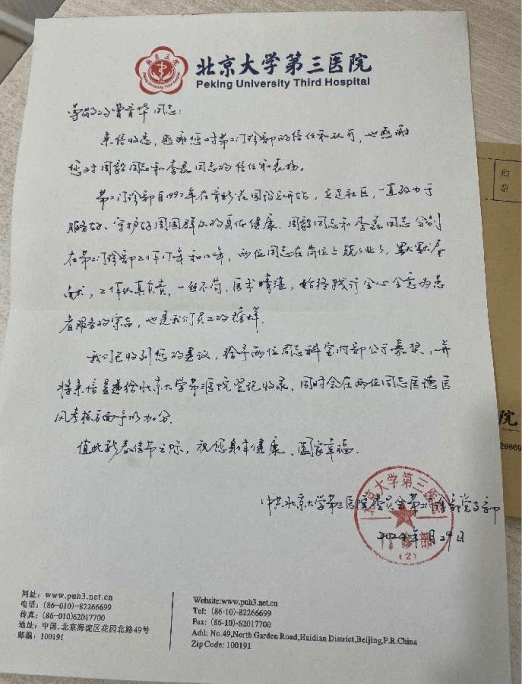 北京大学第三医院
Peking University Third Hospital
尊敬的曹育华同志：
来信收悉，感谢您对第二门诊部的信任和认可，也感谢
您对周毅同志和李磊同志的信任和表扬。
第二门诊部自1992年在育新花园设立开始，立足社区，一直致力于
服务好、守护好周围群众的身体健康。周毅同志和李磊同志分别
在第二门诊部工作17年和12年，两位同志在岗位上兢兢业业，默默奉
献，工作认真负责，一丝不苟，医术精湛，始终践行全心全意为患
者服务的宗旨，也是我们员工的榜样。
我们已收到您的建议，给予两位同志科室内部公示表奖，并
将来信呈递给北京大学第三医院登记收录，同时会在两位同志医德医
风考核方面予以加分。
值此新春佳节之际，祝您身体健康、阖家幸福。
中共北京大学第三医院委员会第二门诊部党支部
2024年1月29日
北京大学第三医院
门诊部
(2)
网址: www.puh3.net.cn
电话: (86-010)-82266699
传真: (86-010)62017700
地址: 中国.北京海淀区花园北路49号
邮编: 100191
Website:www.puh3.net.cn
Tel: (86-10)-82266699
Fax: (86-10)-62017700
Add: No.49,North Garden Road,Haidian District,Beijing,P.R.China
Zip Code: 100191
院